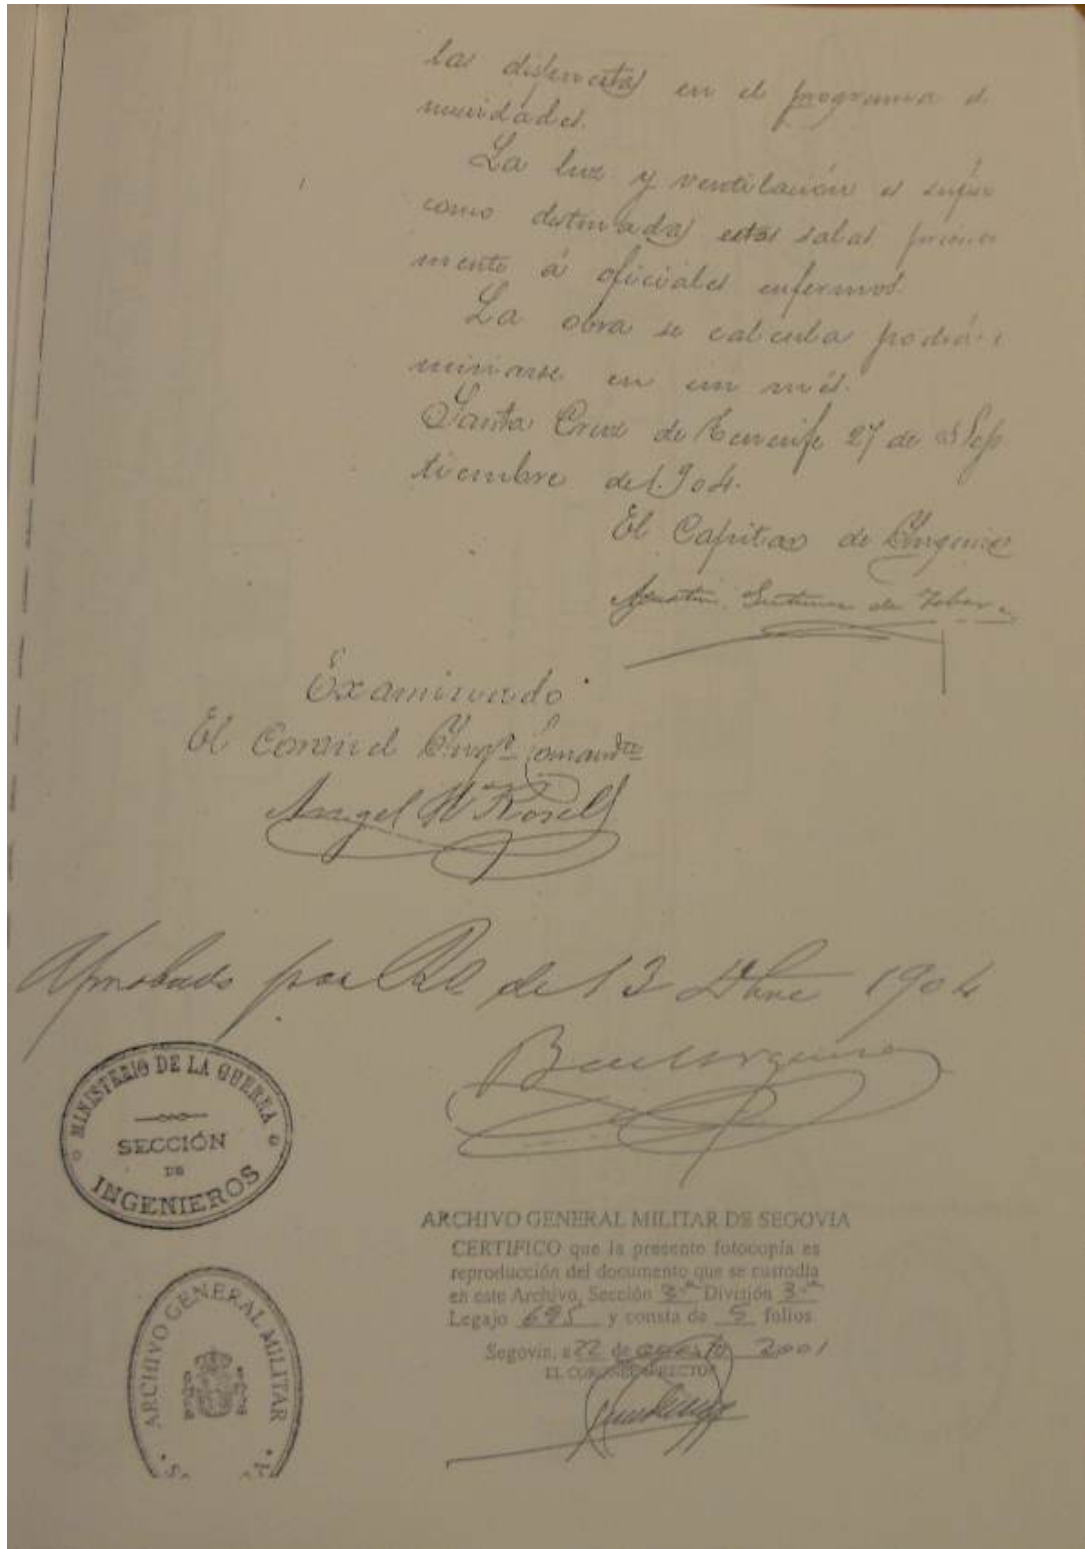 las en el programa d
nuidades.
La luz y ventilación es sufi
como destinadas estas salas
mente á oficiales enfermos.
La obra se calcula podrá
minarse en un més.
Santa Cruz de Tenerife 27 de Sep
tiembre de 1.904.
El Capitan de Ingenie
Agustin de
Examinado
El Coronel Ingº Comandte
Angel Rosell
Aprobado por de 13 1904
MINISTERIO DE LA GUERRA
SECCIÓN
DE
INGENIEROS
ARCHIVO GENERAL MILITAR DE SEGOVIA
CERTIFICO que la presente fotocopia es
reproducción del documento que se custodia
en este Archivo, Sección 3.ª División 3.ª
Legajo 695 y consta de 5 folios.
Segovia, a 22 de agosto 2001
EL CORONEL DIRECTOR
ARCHIVO GENERAL MILITAR